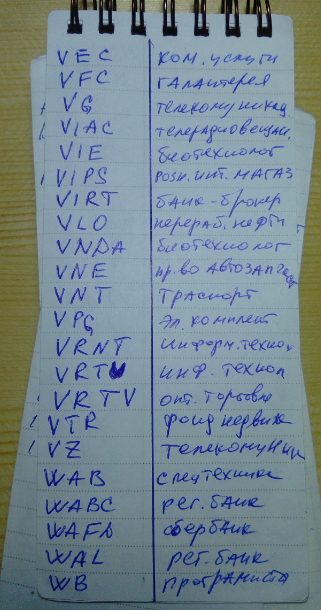 VEC ком. услуги
VFC галантерея
VG телекомуникац
VIAC телерадиовещан.
VIE биотехнолог
VIPS розн. инт. магаз
VIRT банк-брокер
VLO перераб. нефти
VNDA биотехнолог
VNE пр. во автозапчаст
VNT траспорт
VPG эл. комплект
VRNT информ. технол
VRTU инф. технол
VRTV опт. торговля
VTR фонд недвиж
VZ телекомуник
WAB спецтехника
WABC рег. банк
WAFD сбербанк
WAL рег. банк
WB програмиста